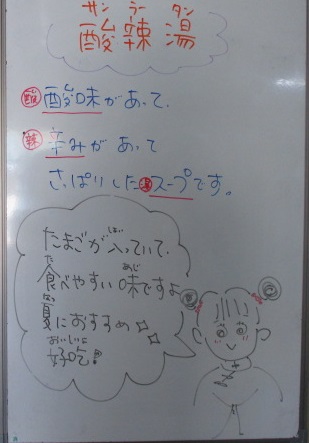 サンラータン
酸辣湯
酸 酸味があって、
辣 辛みがあって
さっぱりした湯スープです。
たまごが入っていて、
食べやすい味ですよ
夏におすすめ
好吃!